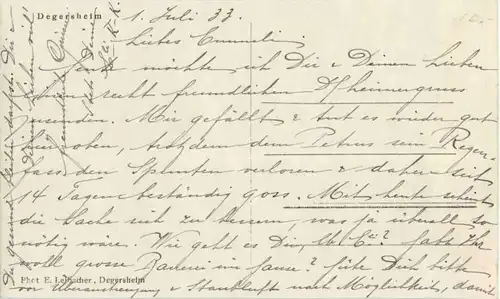 Degersheim
1. Juli 33.
Liebes Emmeli!
möchte ich Dir & Deinen Lieben
recht freundlichen D'heimergruss
zusenden. Mir gefällt & tut es wieder gut
hier oben, trotzdem dem Petrus sein Regen-
fass den Spunten verloren & daher seit
14 Tagen beständig goss. Mit heute scheint
die Sache sich zu bessern, was ja überall so
nötig wäre. Wie geht es Dir, lb. Habt Ihr
wohl grosse im Hause? hüte Dich bitte
vor Überanstrengung & Staubluft nach Möglichkeit, damit
Du gesund bleiben darfst. Dir &
Deinen Lieben viel
Phot E. Lehnher, Degersheim